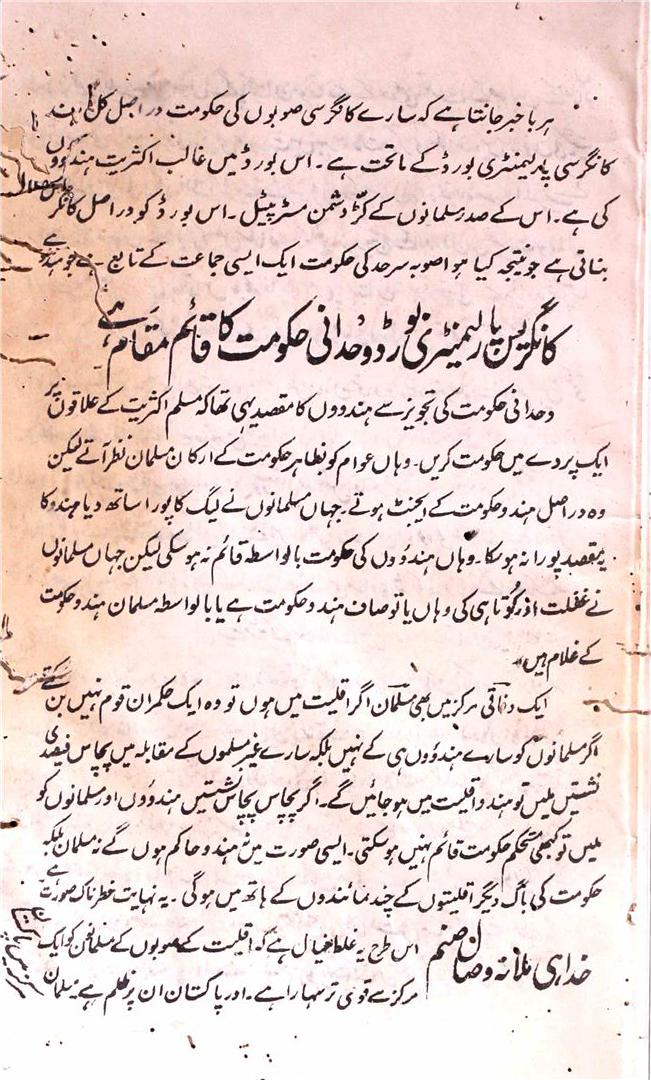 ہر باخبر جانتا ہے کہ سارے کانگرسی صوبوں کی حکومت در اصل کل ہند
کانگرسی پارلیمنٹری بورڈ کے ماتحت ہے۔ اس بورڈ میں غالب اکثریت ہندووں
کی ہے۔ اس کے صدر مسلمانوں کے کٹر دشمن مسٹر پٹیل۔ اس بورڈ کو در اصل کانگرس
بناتی ہے جو نتیجہ کیا ہوا صوبہ سرحد کی حکومت ایک ایسی جماعت کے تابع ہے جو ہندو ہے
کانگریس پارلیمنٹری بورڈ وحدانی حکومت کا قائم مقام ہے
وحدانی حکومت کی تجویز سے ہندووں کا مقصد یہی تھا کہ مسلم اکثریت کے علاقوں پر
ایک پردے میں حکومت کریں۔ وہاں عوام کو بظاہر حکومت کے ارکان مسلمان نظر آتے لیکن
وہ در اصل ہندو حکومت کے ایجنٹ ہوتے۔ جہاں مسلمانوں نے لیگ کا پورا ساتھ دیا ہندو کا
یہ مقصد پورا نہ ہو سکا۔ وہاں ہندوؤں کی حکومت بالواسطہ قائم نہ ہو سکی لیکن جہاں مسلمانوں
نے غفلت اور کوتاہی کی وہاں یا تو صاف ہندو حکومت ہے یا بالواسطہ مسلمان ہندو حکومت
کے غلام ہیں۔
ایک وفاقی مرکز میں بھی مسلمان اگر اقلیت میں ہوں تو وہ ایک حکمران قوم نہیں بن سکتے
اگر مسلمانوں کو سارے ہندوؤں ہی کے نہیں بلکہ سارے غیر مسلموں کے مقابلہ میں پچاس فیصدی
نشستیں ملیں تو ہندو اقلیت میں ہو جائیں گے۔ اگر پچاس پچاس نشستیں ہندوؤں اور مسلمانوں کو
ملیں تو کبھی مستحکم حکومت قائم نہیں ہو سکتی۔ ایسی صورت میں نہ ہندو حاکم ہوں گے نہ مسلمان بلکہ
حکومت کی باگ دیگر اقلیتوں کے چند نمائندوں کے ہاتھ میں ہو گی۔ یہ نہایت خطرناک صورت ہے
خدا ہی ملا نہ وصال صنم
اس طرح یہ غلط خیال ہے کہ اقلیت کے صوبوں کے مسلمانوں کو ایک
مرکز سے قوی تر سہارا ہے۔ اور پاکستان ان پر ظلم ہے مسلمان